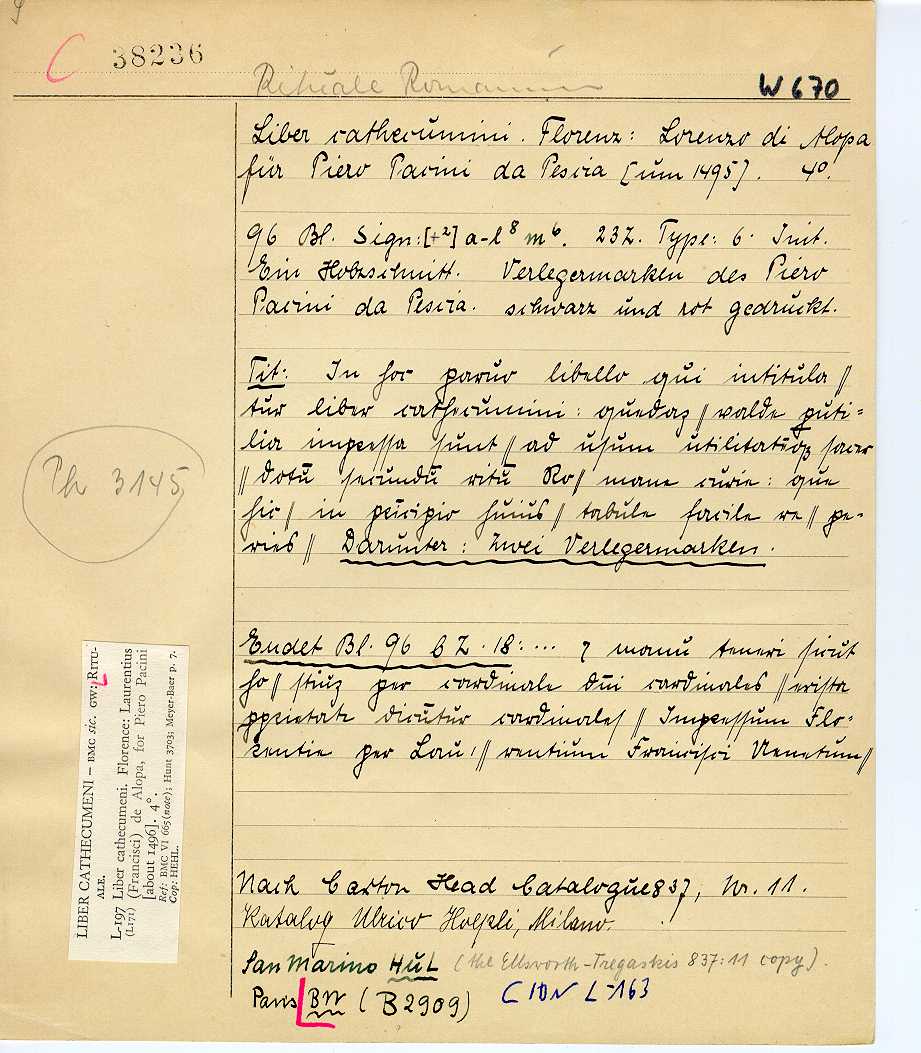 C 38236
Rituale Romanum
W 670
Liber cathecumini. Florenz: Lorenzo di Alopa
für Piero Pacini da Pescia [um 1495]. 4⁰.
96 Bl. Sign:[+²] a-l⁸ m⁶. 23 Z. Type: 6. Init.
Ein Holzschnitt. Verlegermarken des Piero
Pacini da Pescia. schwarz und rot gedruckt.
Tit: In hoc paruo libello qui intitula//
tur liber cathecumini: quedaz // valde puti=
lia impressa sunt // ad usum utilitatēqz sacer
// dotū secundū ritū Ro// mane curie: que
hic // in pricipio huius // tabule facile re // pe-
ries // Darunter: Zwei Verlegermarken.
Ph 3145
Endet Bl. 96 b Z. 18: ... ⁊ manu teneri sicut
ho // stiuz per cardinale dñi cardinales // erista
pprietate dicūtur cardinales // Impressum Flo-
rentie per Lau // rentium Francisci Uenetum //
LIBER CATHECUMENI – BMC sic. GW: RITU-
ALE.
L-197 Liber cathecumeni. Florence: Laurentius
(L171) (Francisci) de Alopa, for Piero Pacini
[about 1496]. 4°.
Ref: BMC VI 665 (note); Hunt 3703; Meyer-Baer p. 7.
Cop: HEHL.
Nach Caxton Head Catalogue 837, Nr. 11.
Katalog Ulrico Hoepli, Milano.
San Marino HuL (the Ellsworth-Tregaskis 837:11 copy).
Paris BN (B 2909) CIBN L-163